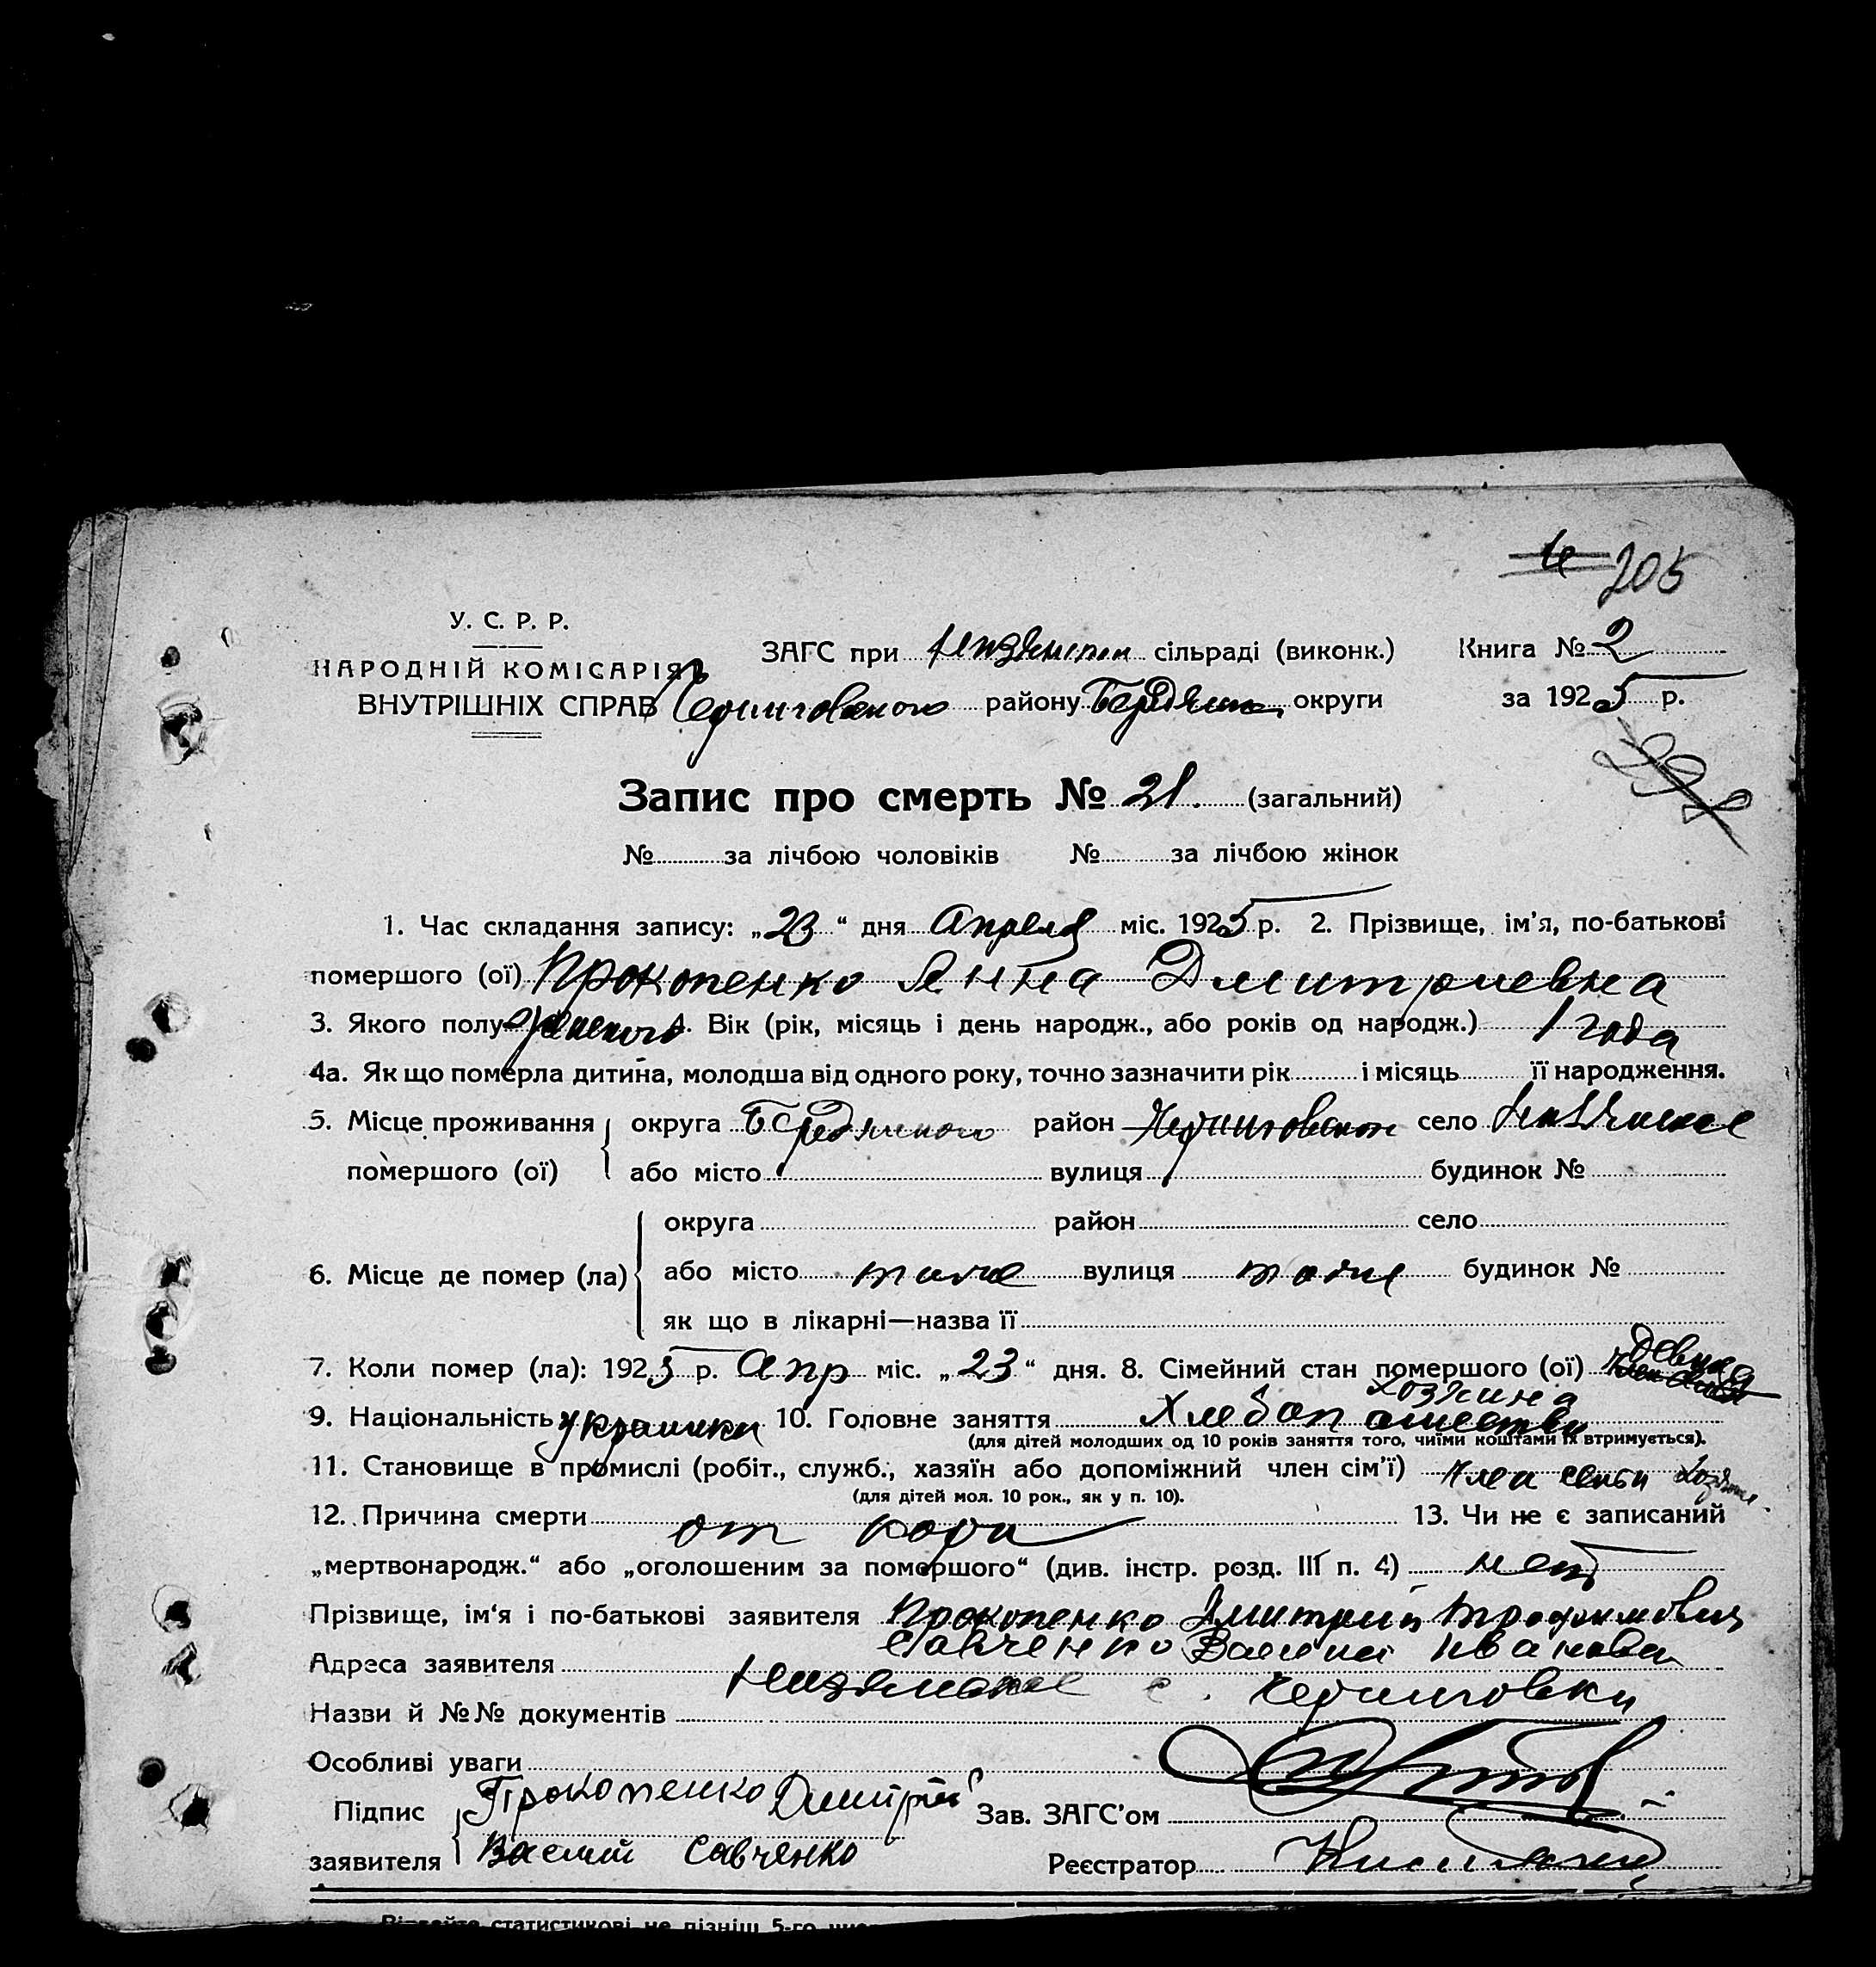 205
У. С. Р. Р.
НАРОДНІЙ КОМІСАРІЯТ
ВНУТРІШНІХ СПРАВ
ЗАГС при сільраді (виконк.) Книга № 2
Черниговского району Бердянск округи за 1925 р.
Запис про смерть № 21. (загальний)
№ за лічбою чоловіків № за лічбою жінок
1. Час складання запису: „23“ дня Апреля міс. 1925 р. 2. Прізвище, ім'я, по-батькові
помершого (ої) Прокопенко Анна Дмитриевна
3. Якого полу женского 4. Вік (рік, місяць і день народж., або років од народж.) 1 года
4а. Як що померла дитина, молодша від одного року, точно зазначити рік і місяць її народження.
5. Місце проживання округа Бердянского район Черниговском село
помершого (ої) або місто вулиця будинок №
округа район село
6. Місце де помер (ла) або місто тоже вулиця тоже будинок №
як що в лікарні—назва її
7. Коли помер (ла): 1925 р. Апр міс. „23“ дня. 8. Сімейний стан помершого (ої) девица
хозяина
9. Національність украинка 10. Головне заняття Хлебопашество
(для дітей молодших од 10 років заняття того, чиїми коштами їх втримується).
11. Становище в промислі (робіт., служб., хазяїн або допоміжний член сім'ї) член семьи
(для дітей мол. 10 рок., як у п. 10).
12. Причина смерти от кори 13. Чи не є записаний
„мертвонародж.“ або „оголошеним за помершого“ (див. інстр. розд. III п. 4) нет
Прізвище, ім'я і по-батькові заявителя Прокопенко Дмитрий Трофимович
Савченко Василий Иванович
Адреса заявителя с. Черниговки
Назви й №№ документів
Особливі уваги
Підпис Прокопенко Дмитрий Зав. ЗАГС'ом
заявителя Василий Савченко Реєстратор
статистикові не пізніш 5-го